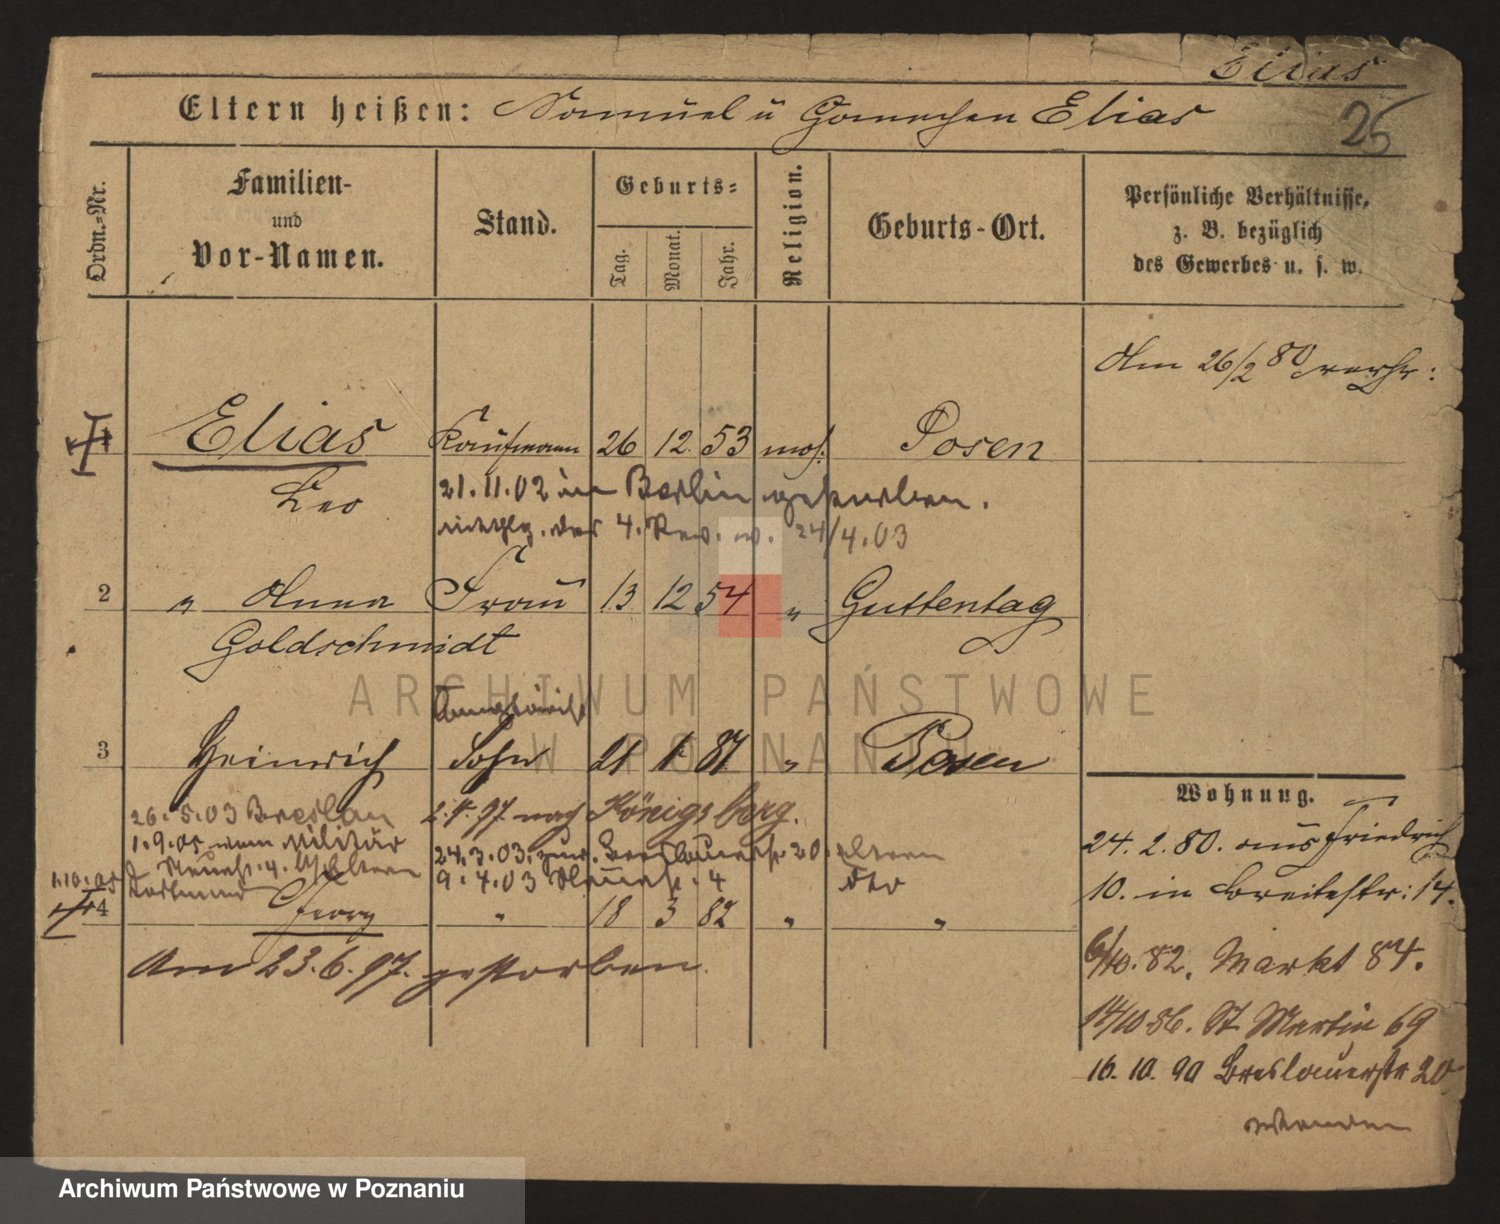 Elias
Eltern heißen: Samuel u Hannchen Elias
25
Ordn.-Nr.
Familien-
und
Vor-Namen.
Stand.
Geburts-
Tag.
Monat.
Jahr.
Religion.
Geburts-Ort.
Persönliche Verhältnisse,
z. B. bezüglich
des Gewerbes u. s. w.
Am 26/2 80 verh:
1 Elias Kaufmann 26 12. 53 mos. Posen
Leo
21.11.02 in Berlin gestorben.
4. Rev. v. 24/4.03
2 " Anna Frau 13 12 54 " Guttentag
Goldschmidt
3 Heinrich Sohn 21 1 81 " Posen
26.5.03 Breslau
2.4.97 nach Königsberg.
1.9.05 zum Militär
24.3.03. zur. Breslauerstr 20. Eltern
9.4.03 4 dto
1.10.05 Dortmund
4 Georg " 18 3 82 " "
Am 23.6.97. gestorben.
Wohnung.
24.2.80. aus Friedrich
10. in Breitestr: 14.
6/10.82. Markt 84.
14/10 86. St Martin 69
16.10.90 Breslauerstr 20
wenden
ARCHIWUM PAŃSTWOWE
W POZNANIU
Archiwum Państwowe w Poznaniu